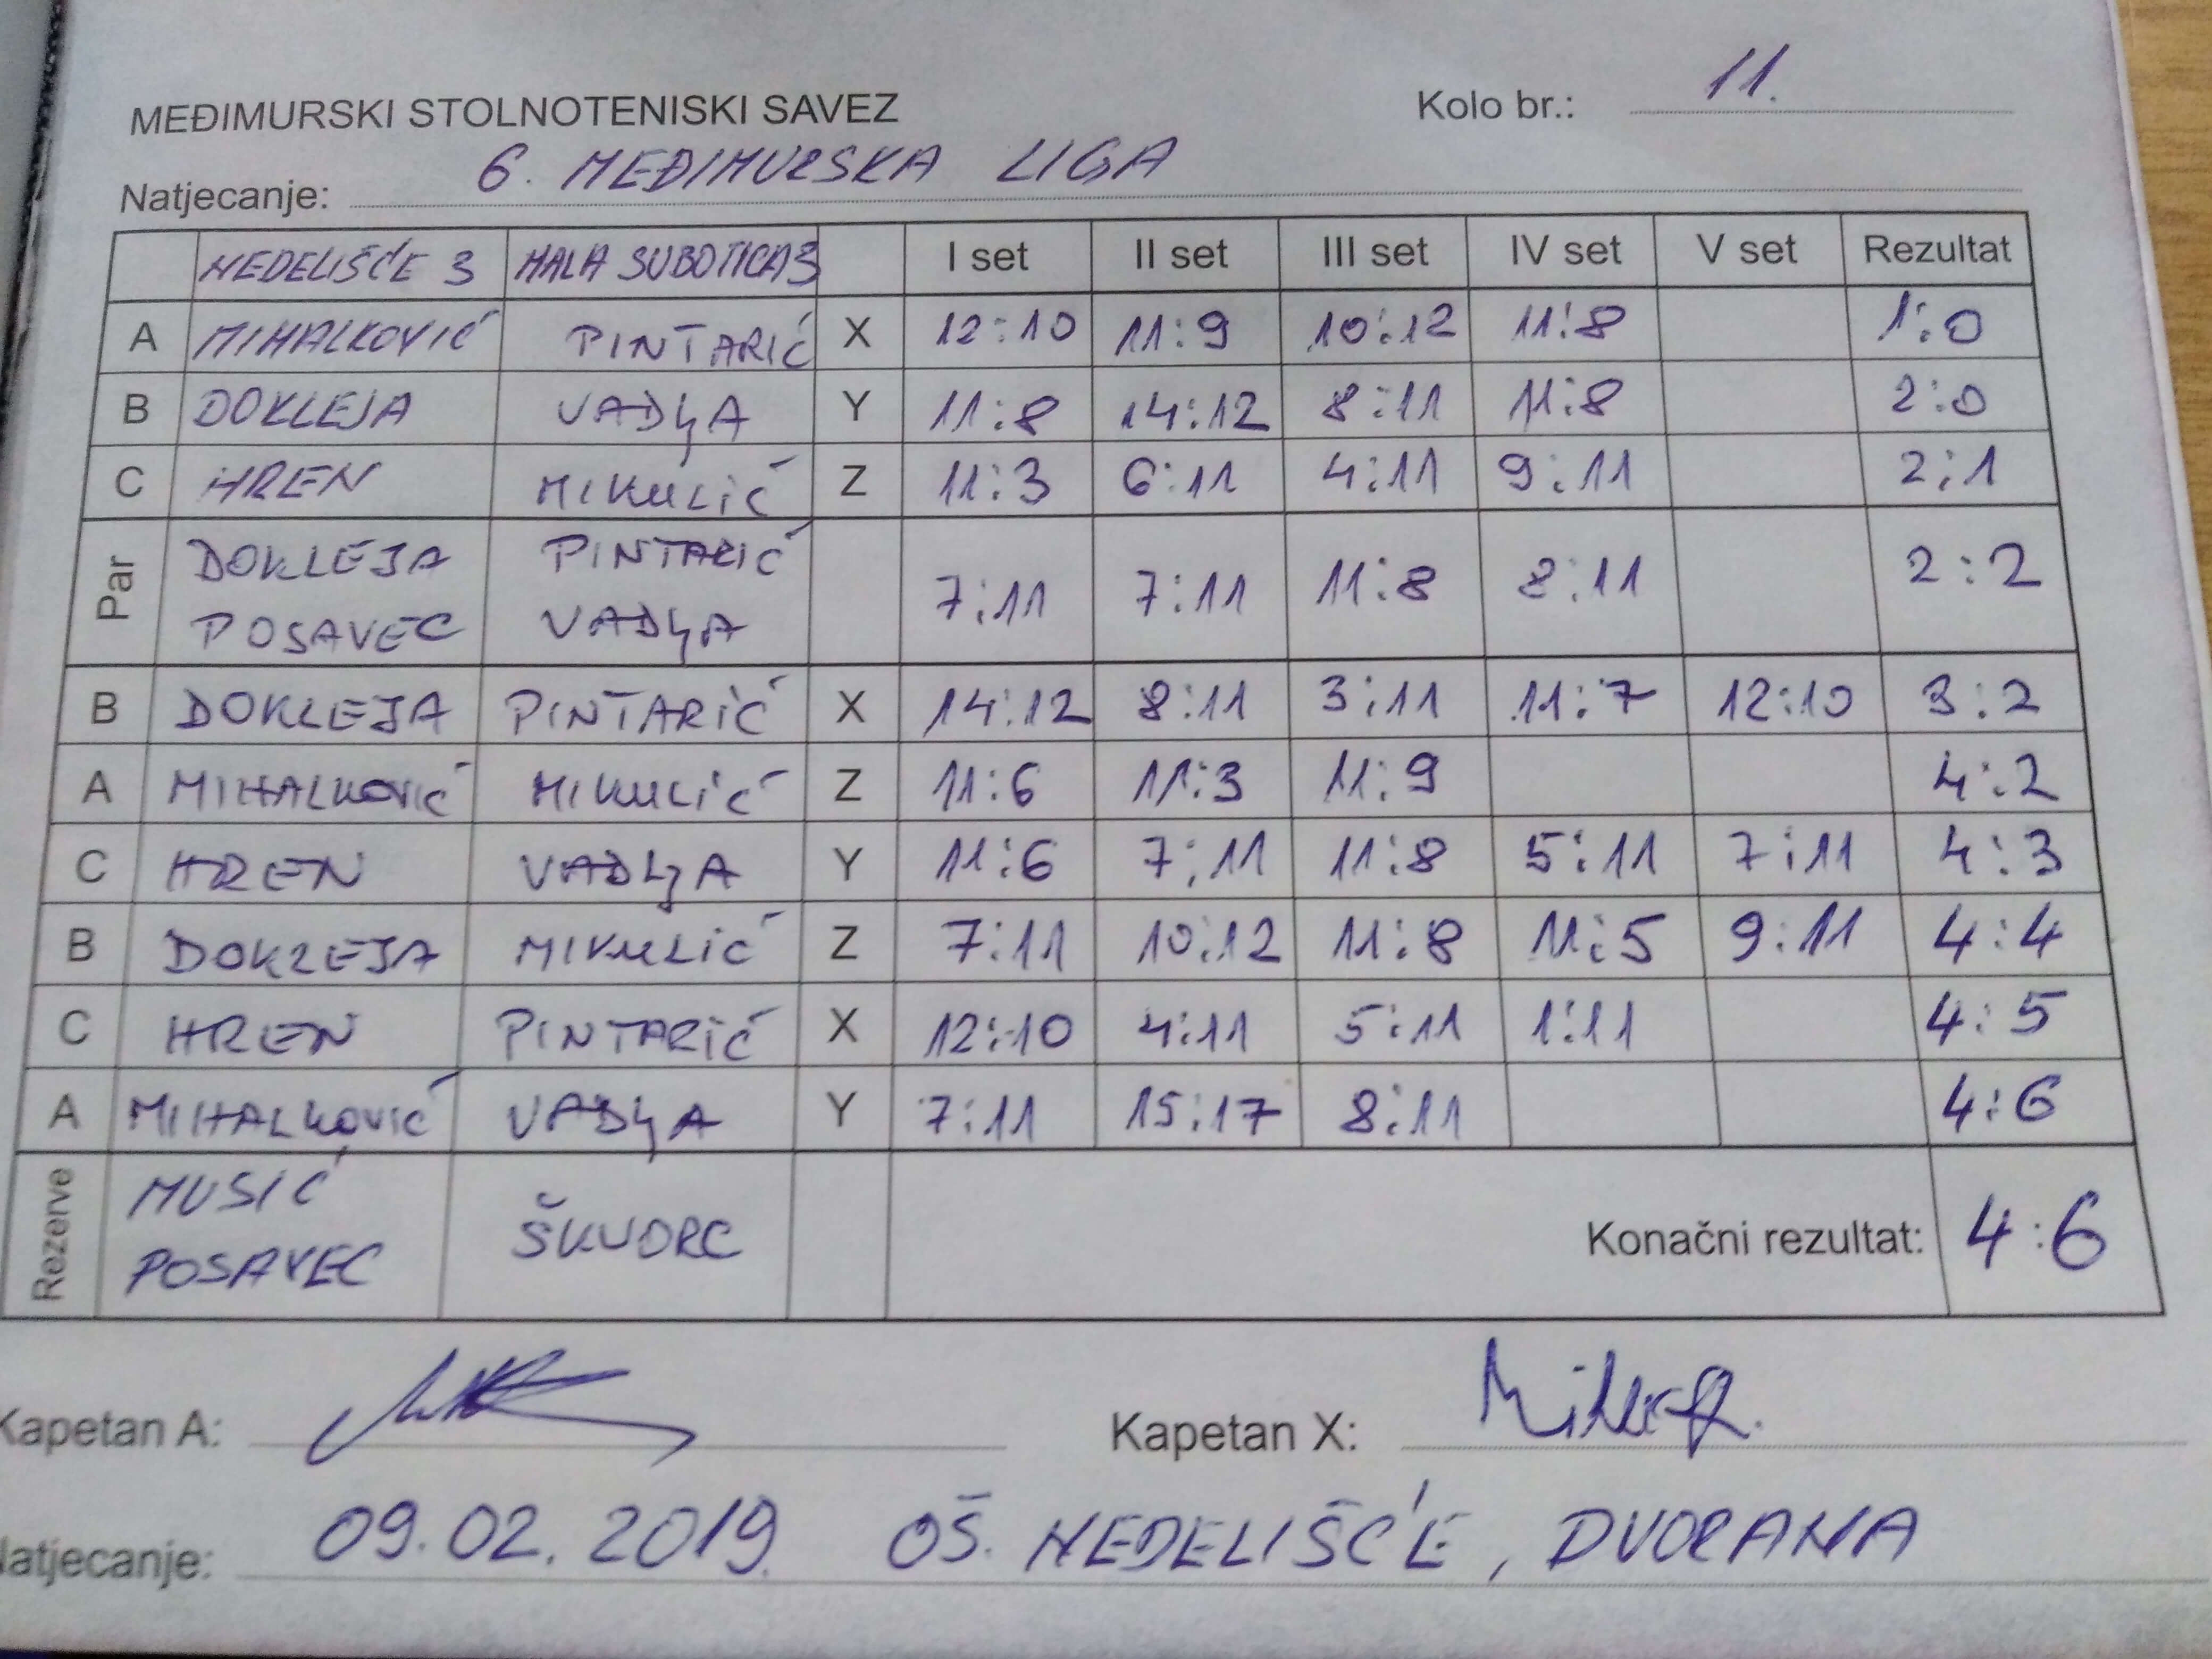 MEĐIMURSKI STOLNOTENISKI SAVEZ Kolo br.: 11.
Natjecanje: 6. MEĐIMURSKA LIGA
NEDELIŠĆE 3 MALA SUBOTICA 3 I set II set III set IV set V set Rezultat
A MIHALKOVIĆ PINTARIĆ X 12:10 11:9 10:12 11:8 1:0
B DOKLEJA VADLJA Y 11:8 14:12 8:11 11:8 2:0
C HREN MIKULIĆ Z 11:3 6:11 4:11 9:11 2:1
Par DOKLEJA PINTARIĆ 7:11 7:11 11:8 8:11 2:2
POSAVEC VADLJA
B DOKLEJA PINTARIĆ X 14:12 8:11 3:11 11:7 12:10 3:2
A MIHALKOVIĆ MIKULIĆ Z 11:6 11:3 11:9 4:2
C HREN VADLJA Y 11:6 7:11 11:8 5:11 7:11 4:3
B DOKLEJA MIKULIĆ Z 7:11 10:12 11:8 11:5 9:11 4:4
C HREN PINTARIĆ X 12:10 4:11 5:11 1:11 4:5
A MIHALKOVIĆ VADLJA Y 7:11 15:17 8:11 4:6
Rezerve MUSIĆ ŠKVORC Konačni rezultat: 4:6
POSAVEC
Kapetan A: Kapetan X:
Natjecanje: 09.02.2019. OŠ. NEDELIŠĆE, DVORANA